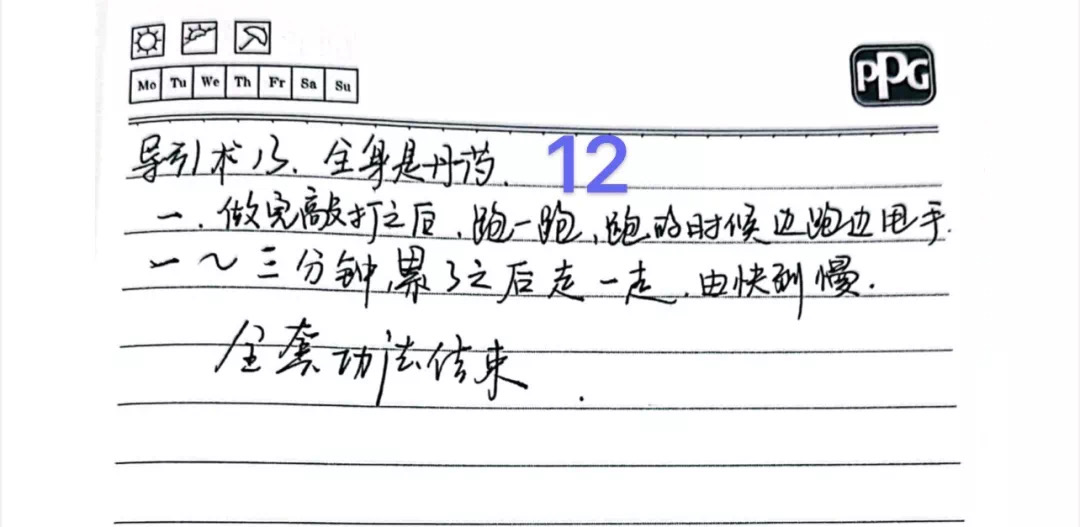 Mo Tu We Th Fr Sa Su
PPG
导引术13、全身是丹药. 12
一、做完敲打之后、跑一跑、跑的时候边跑边甩手.
一~三分钟,累了之后走一走、由快到慢.
全套功法结束.